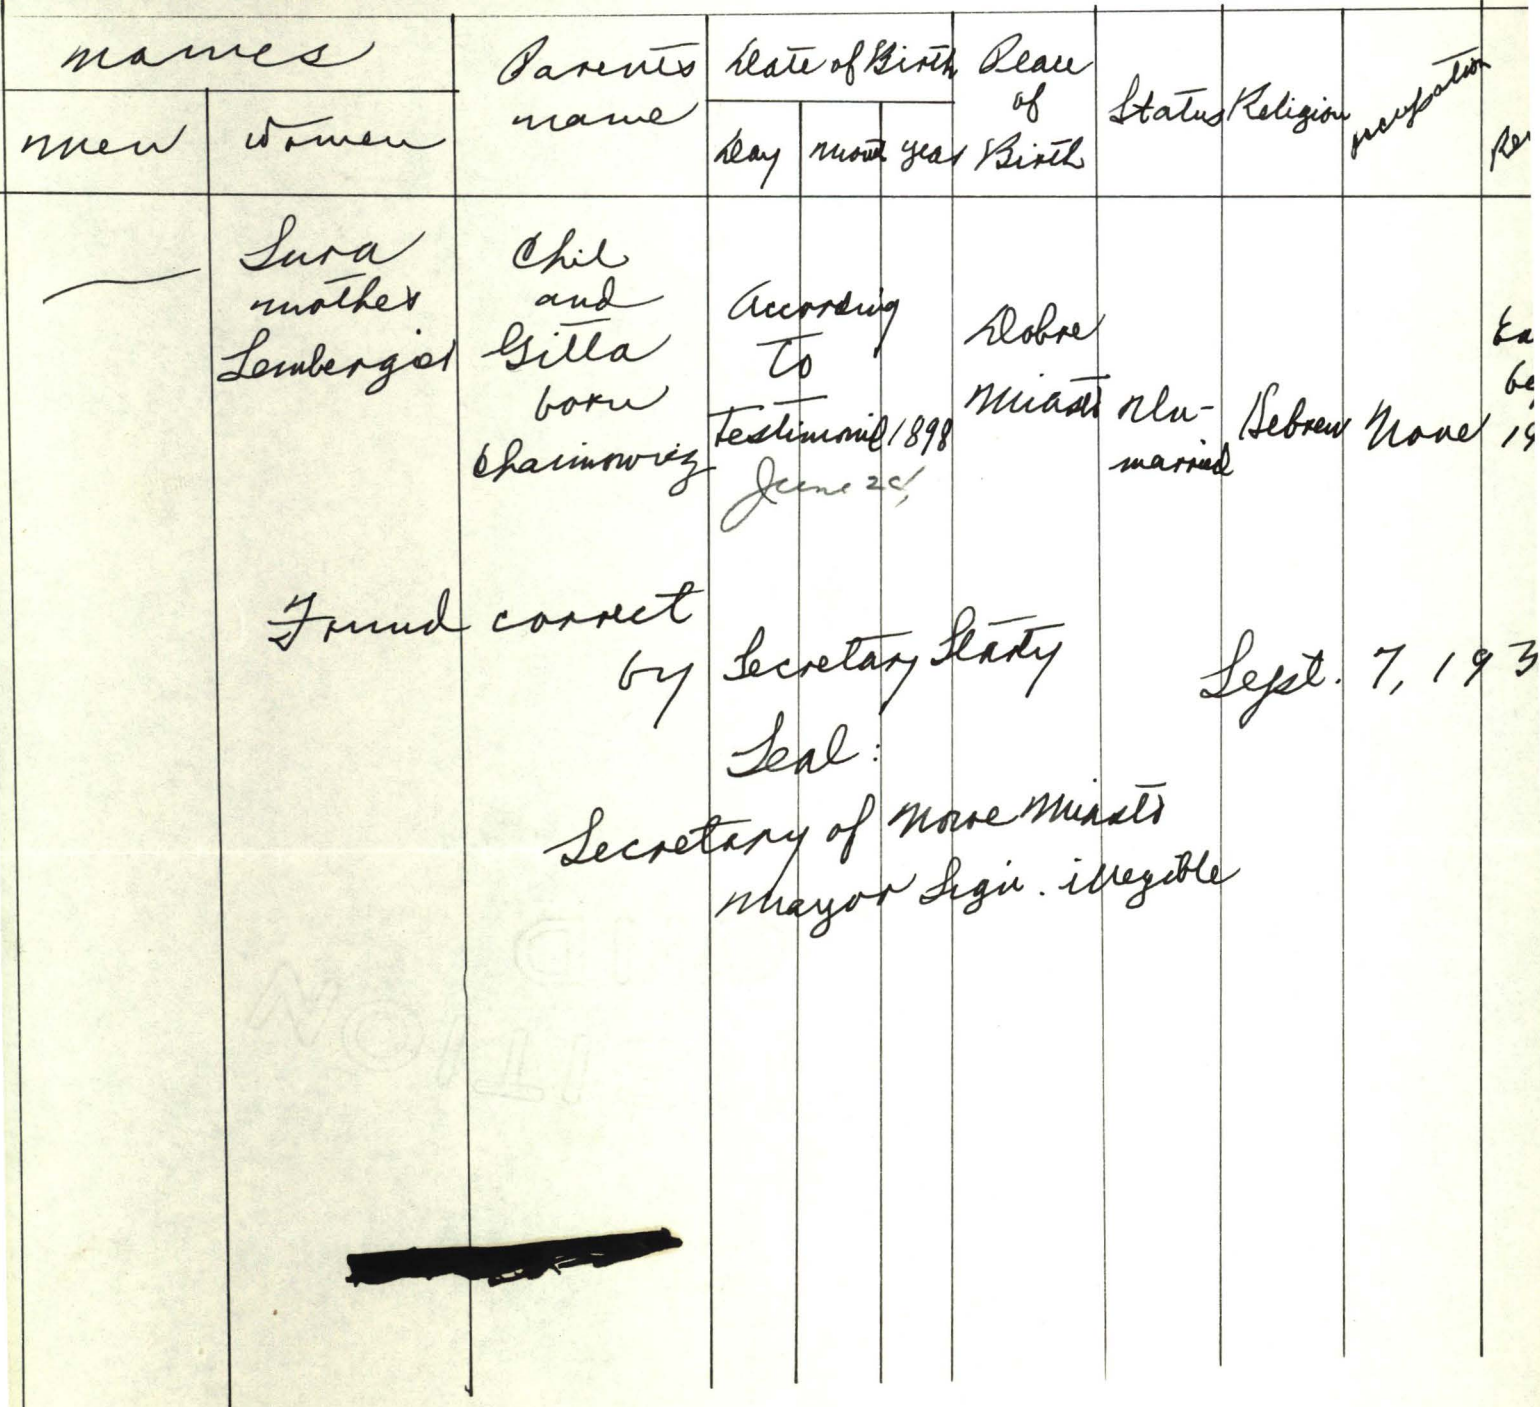 names
Parents name
Date of Birth
Place of Birth
Status
Religion
occupation
men
women
Day
month
year
Sura mother
Lemberger
Chil
and
Gitta
born
Chaimowicz
According
To
Testimonil 1898
June 2d,
Dobre
Miasto
Un-
married
Hebrew
None
Found correct
by Secretary
Sept. 7, 193
Seal:
Secretary of Nowe Miasto
Mayor Sign. illegible